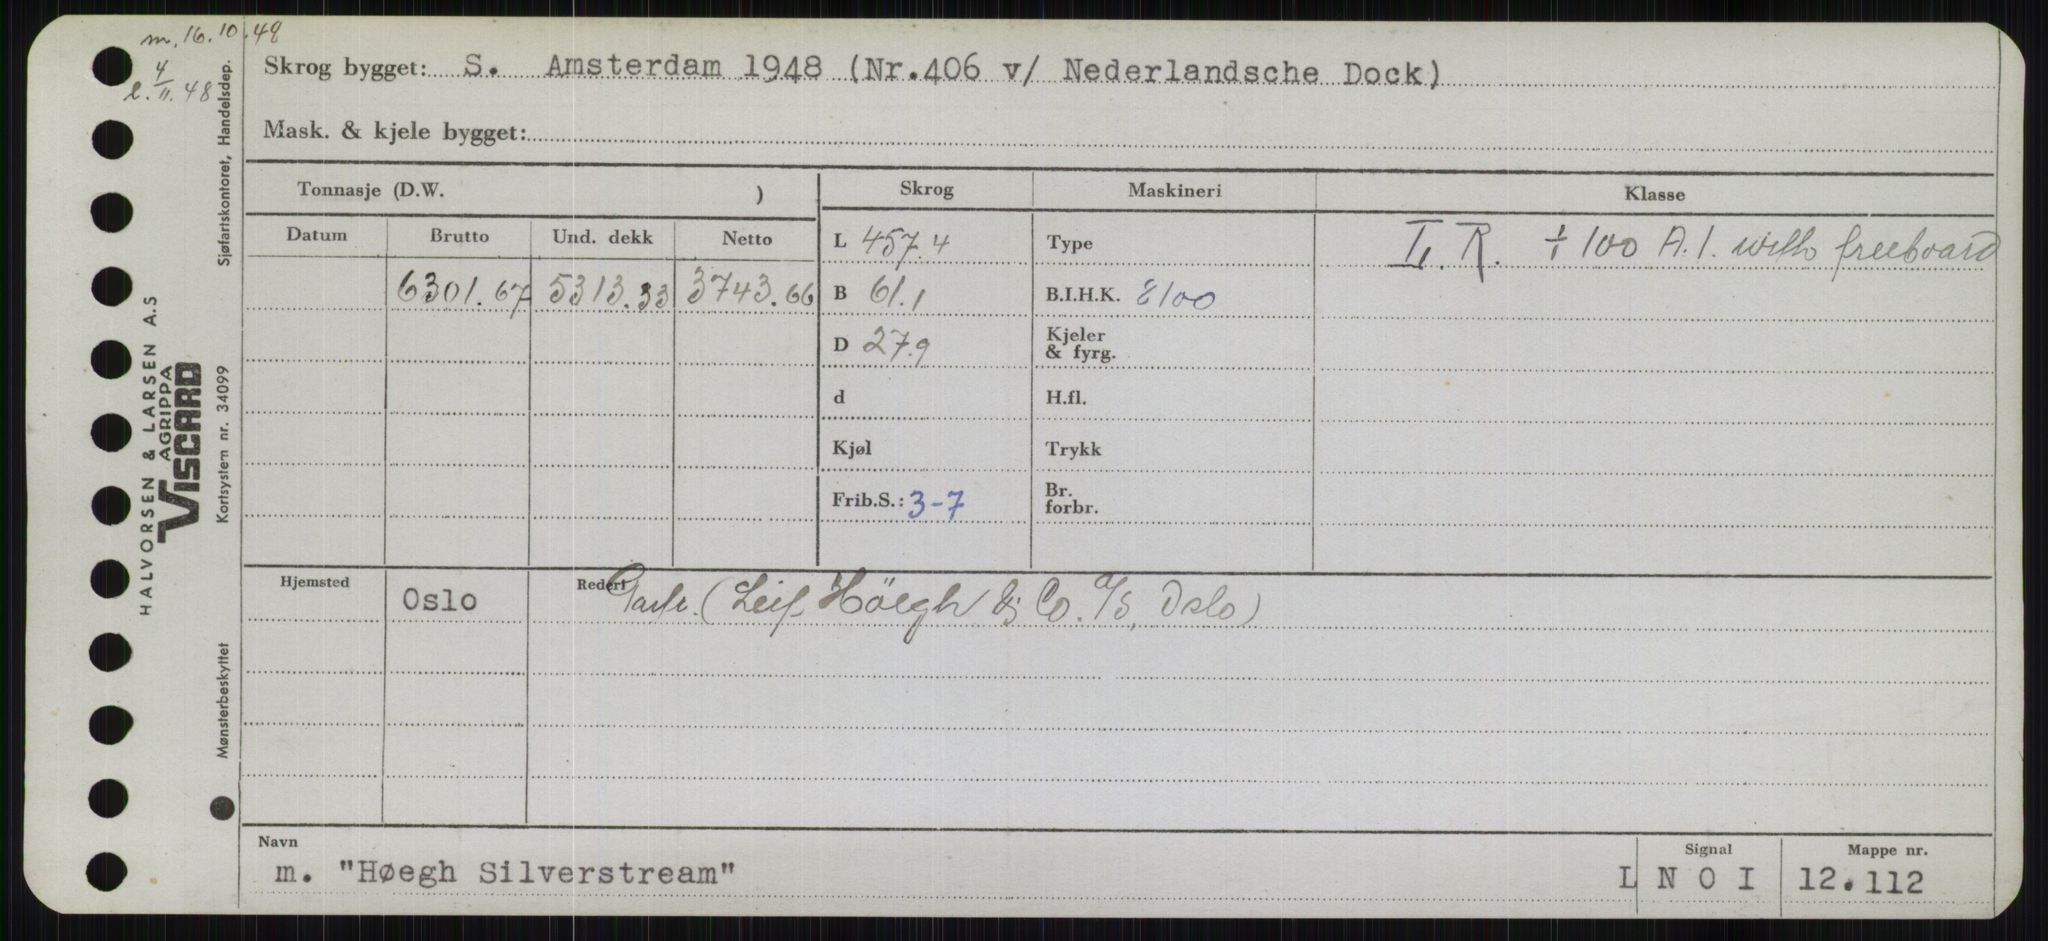 m. 16.10.48
l. 4/11.48
Skrog bygget: S. Amsterdam 1948 (Nr.406 v/ Nederlandsche Dock)
Mask. & kjele bygget:
Tonnasje (D.W. )
Skrog
Maskineri
Klasse
Datum Brutto Und. dekk Netto
L 457.4
Type
L. R. + 100 A.1. with freeboard
6301.67 5313.33 3743.66
B 61.1
B.I.H.K. 8100
D 27.9
Kjeler
& fyrg.
d
H.fl.
Kjøl
Trykk
Frib.S.: 3-7
Br.
forbr.
Hjemsted
Oslo
Rederi
Partr. (Leif Höegh & Co. A/S, Oslo)
Navn
m. "Høegh Silverstream"
Signal
L N O I
Mappe nr.
12.112
HALVORSEN & LARSEN A.S
AGRIPPA
VISCARD
Sjøfartskontoret, Handelsdep.
Kortsystem nr. 34099
Mønsterbeskyttet